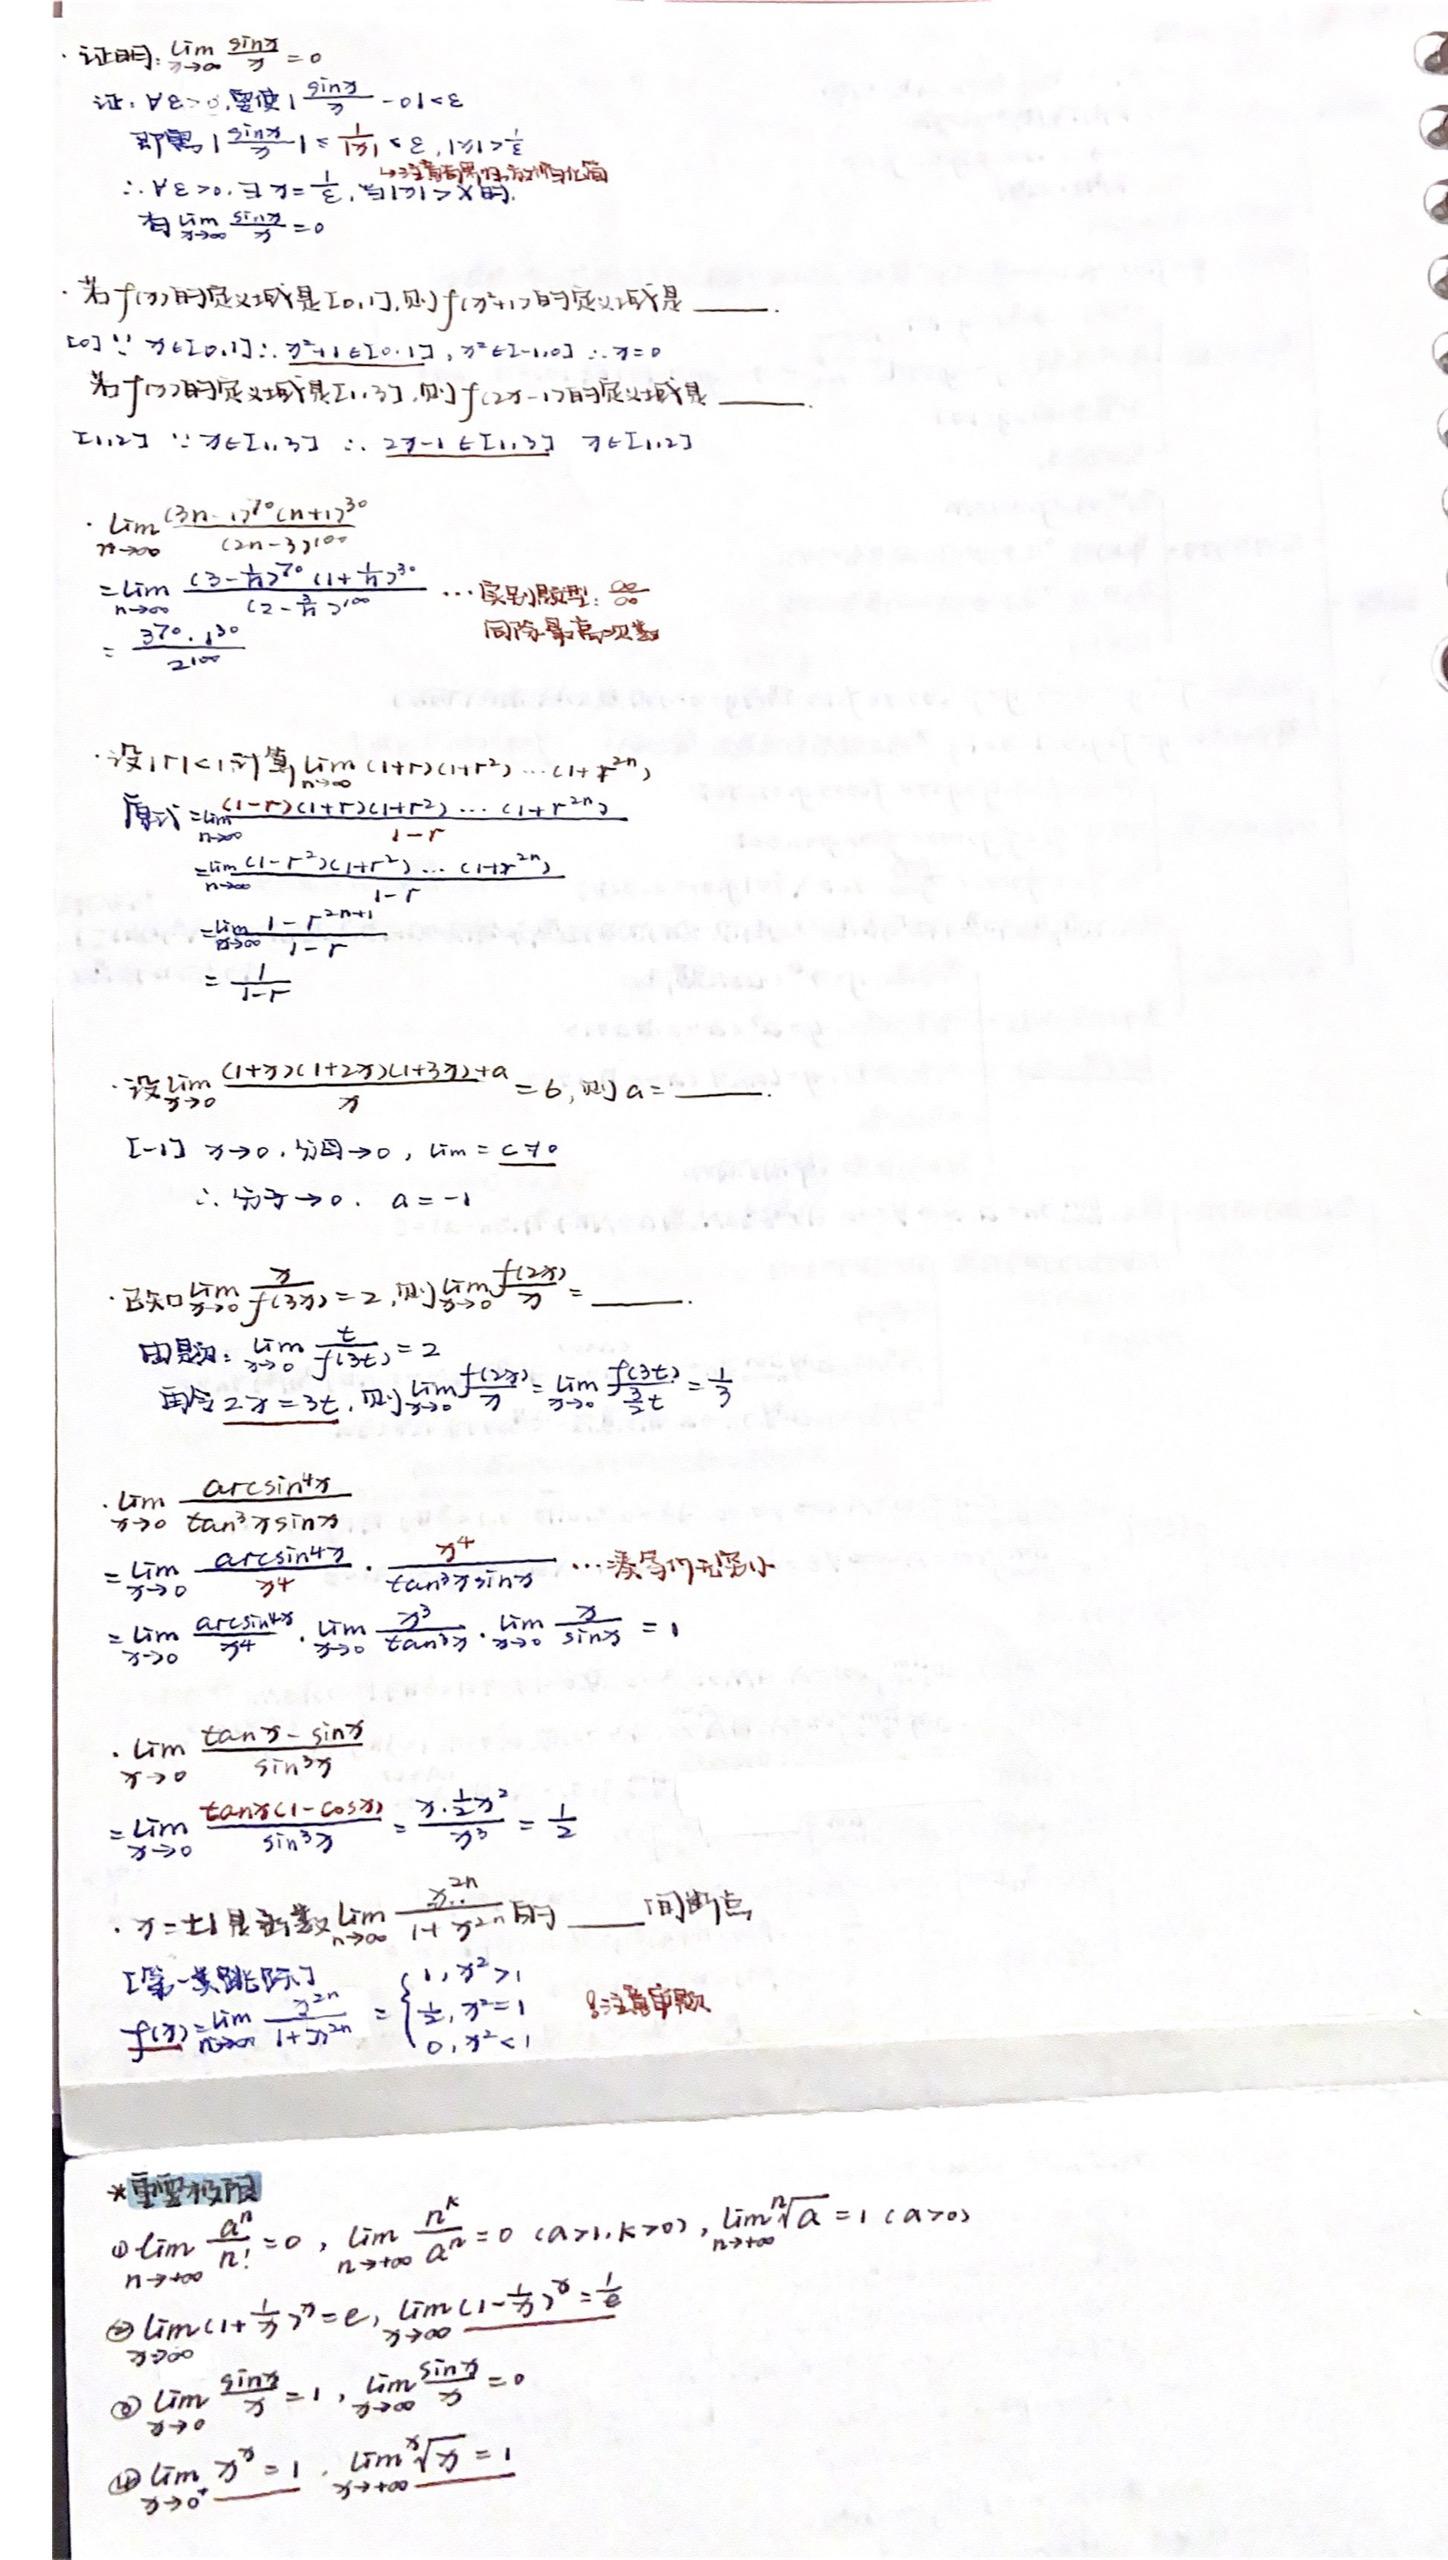 · 证明: lim_{x→∞} sinx/x = 0
证: ∀ε>0, 要使 |sinx/x - 0| < ε
即需 |sinx/x| ≤ 1/|x| < ε, |x| > 1/ε
↳注意有界性,放缩化简
∴ ∀ε>0, ∃X=1/ε, 当|x|>X时,
有 lim_{x→∞} sinx/x = 0
· 若f(x)的定义域是[0,1],则f(x²+1)的定义域是____.
[0] ∵ x∈[0,1] ∴ x²+1∈[0,1], x²∈[-1,0] ∴ x=0
若f(x)的定义域是[1,3],则f(2x-1)的定义域是____.
[1,2] ∵ x∈[1,3] ∴ 2x-1∈[1,3] x∈[1,2]
· lim_{n→∞} (3n-1)^{70}(n+1)^{30}/(2n-3)^{100}
= lim_{n→∞} (3-1/n)^{70}(1+1/n)^{30}/(2-3/n)^{100} …实别题型: ∞/∞
同除最高次数
= 3^{70}·1^{30}/2^{100}
· 设|r|<1,计算 lim_{n→∞} (1+r)(1+r²)…(1+r^{2n})
原式 = lim_{n→∞} (1-r)(1+r)(1+r²)…(1+r^{2n})/(1-r)
= lim_{n→∞} (1-r²)(1+r²)…(1+r^{2n})/(1-r)
= lim_{n→∞} (1-r^{2n+1})/(1-r)
= 1/(1-r)
· 设 lim_{x→0} ((1+x)(1+2x)(1+3x)+a)/x = 6, 则a=____.
[-1] x→0, 分母→0, lim = c≠0
∴ 分子→0. a=-1
· 已知 lim_{x→0} x/f(3x) = 2, 则 lim_{x→0} f(2x)/x = ____.
由题知: lim_{x→0} t/f(3t) = 2
再令2x=3t, 则 lim_{x→0} f(2x)/x = lim_{x→0} f(3t)/(3/2 t) = 1/3
· lim_{x→0} arcsin⁴x/(tan³x sinx)
= lim_{x→0} arcsin⁴x/x⁴ · x⁴/(tan³x sinx) …凑等价无穷小
= lim_{x→0} arcsin⁴x/x⁴ · lim_{x→0} x³/tan³x · lim_{x→0} x/sinx = 1
· lim_{x→0} (tanx - sinx)/sin³x
= lim_{x→0} tanx(1-cosx)/sin³x = x·½x²/x³ = 1/2
· x=±1是函数 lim_{n→∞} x^{2n}/(1+x^{2n}) 的____间断点
[第一类跳跃]
f(x) = lim_{n→∞} x^{2n}/(1+x^{2n}) = { 1, x²>1; ½, x²=1; 0, x²<1 !注意审题
*重要极限
① lim_{n→+∞} aⁿ/n! = 0, lim_{n→+∞} n^k/aⁿ = 0 (a>1, k>0), lim_{n→+∞} ⁿ√a = 1 (a>0)
② lim_{x→∞} (1+1/x)^x = e, lim_{x→∞} (1-1/x)^x = 1/e
③ lim_{x→0} sinx/x = 1, lim_{x→∞} sinx/x = 0
④ lim_{x→0⁺} x^x = 1, lim_{x→+∞} ˣ√x = 1